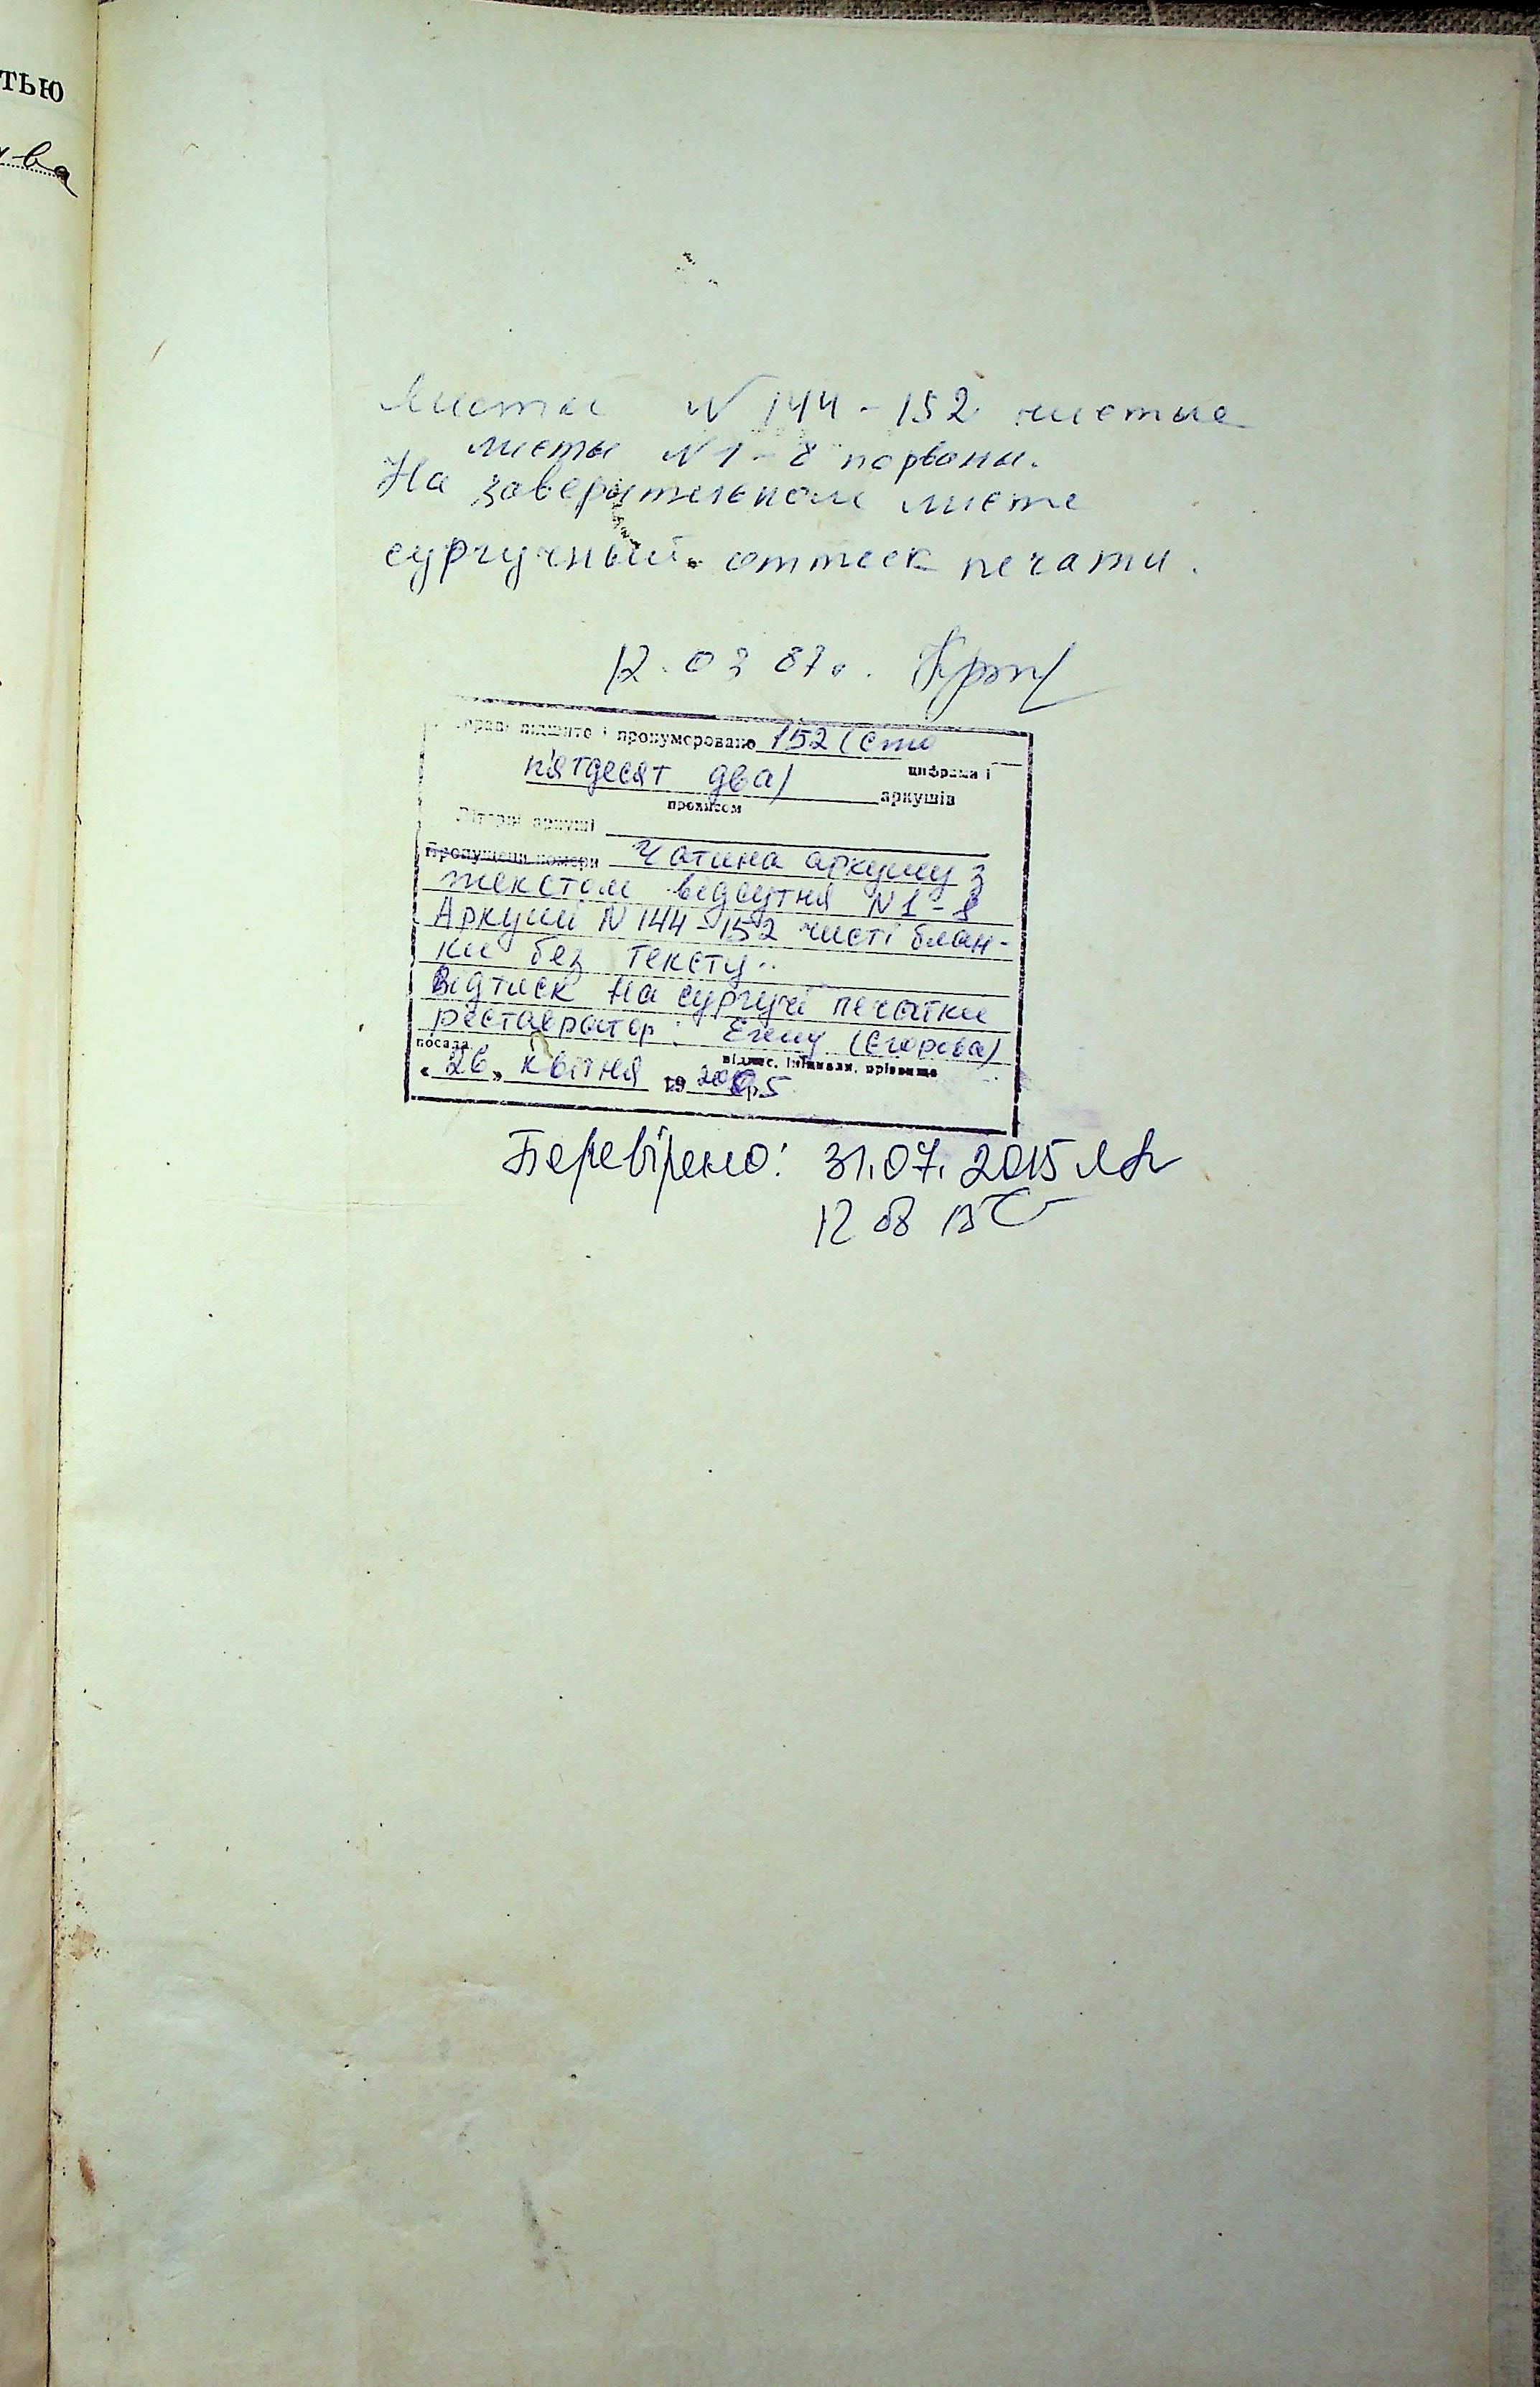 тью
ва
Листы N 144-152 чистые
листы N 1-8 порваны.
На заверительном листе
сургучный оттиск печати.
12.03 87г.
справі підшито і пронумеровано 152 (сто
цифрама і
п'ятдесят два) аркушів
прописом
Літерні аркуші
Пропущени номери Чатина аркушу з
текстом відсутня N 1-8
Аркуші N 144-152 чисті блан-
ки без тексту.
Відтиск на сургучі печатки
реставратор: (Єгорова)
посада підпис, ініціали, прізвище
« 26 » квітня 19 2005 р.
Перевірено: 31.07.2015
12 08 15